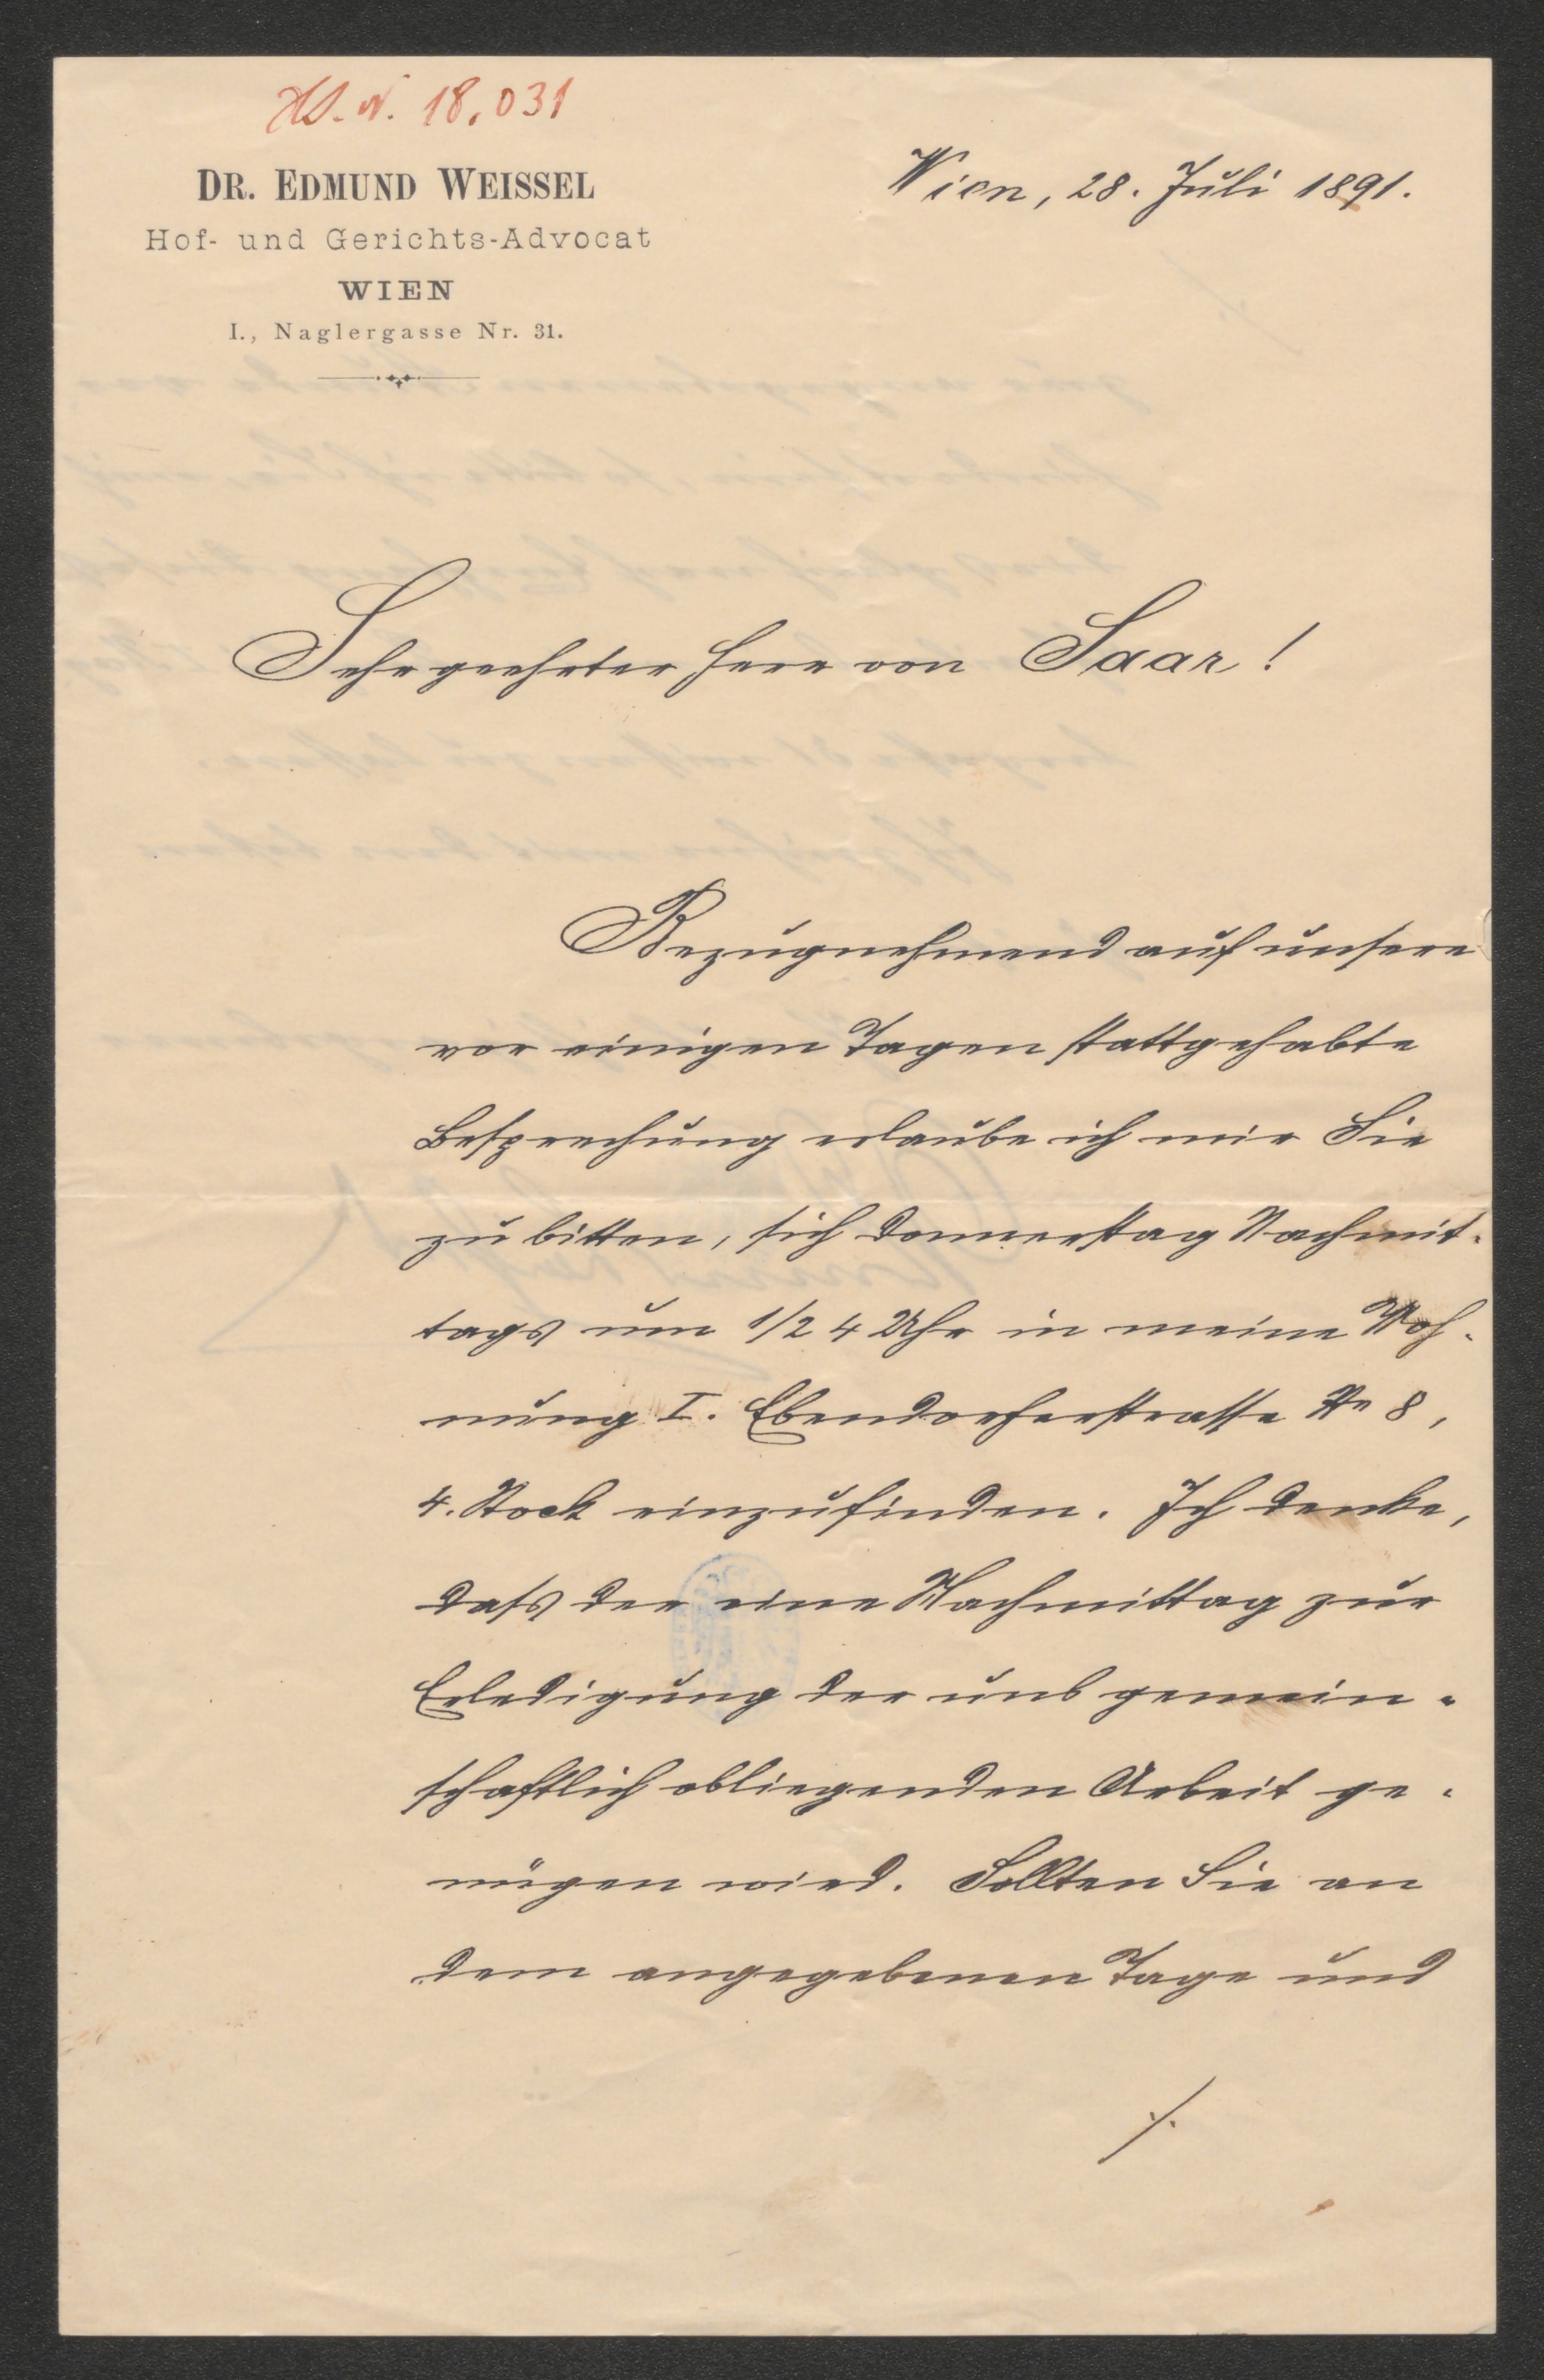 H.S. N. 18.031
DR. EDMUND WEISSEL
Hof- und Gerichts-Advocat
WIEN
I., Naglergasse Nr. 31.
Wien, 28. Juli 1891.
Sehr geehrter Herr von Saar!
Bezugnehmend auf unsere
vor einigen Tagen stattgehabte
Besprechung erlaube ich mir Sie
zu bitten, sich Donnerstag Nachmit-
tags um 1/2 4 Uhr in meine Woh-
nung I. Ebendorferstrasse No 8,
4. Stock einzufinden. Ich denke,
dass der eine Nachmittag zur
Erledigung der uns gemein-
schaftlich obliegenden Arbeit ge-
nügen wird. Sollten Sie an
dem angegebenen Tage und
./.